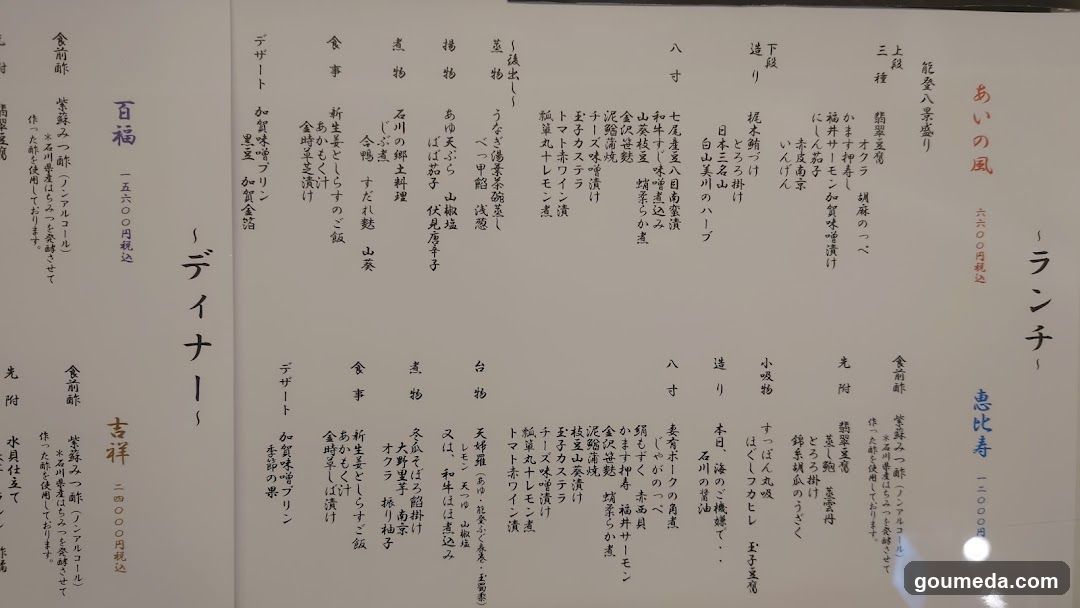 ～ランチ～
あいの風
六六〇〇円税込
能登八景盛り
上段
三種 翡翠豆腐
オクラ 胡麻のっぺ
かます押寿し
福井サーモン加賀味噌漬け
にしん茄子
赤皮南京
いんげん
下段
造り 梶木鮪づけ
とろろ掛け
日本三名山
白山美川のハーブ
八寸 七尾産豆八目南蛮漬
和牛すじ味噌煮込み
山葵枝豆 蛸柔らか煮
金沢笹麩
泥鰌蒲焼
チーズ味噌漬け
玉子カステラ
トマト赤ワイン漬
瓢箪丸十レモン煮
～後出し～
蒸物 うなぎ湯葉茶碗蒸し
べっ甲餡 浅葱
揚物 あゆ天ぷら 山椒塩
ばば茄子 伏見唐辛子
煮物 石川の郷土料理
じぶ煮
合鴨 すだれ麩 山葵
食事 新生姜としらすのご飯
あかもく汁
金時草芝漬け
デザート 加賀味噌プリン
黒豆 加賀金箔
恵比寿
一二〇〇〇円
食前酢 紫蘇みつ酢（ノンアルコール）
＊石川県産はちみつを発酵させて
作った酢を使用しております。
先附 翡翠豆腐 蒸雲丹
蒸し鮑
とろろ掛け
錦糸胡瓜のうざく
小吸物 すっぽん丸吸
ほぐしフカヒレ 玉子豆腐
造り 本日、海のご機嫌で・・
石川の醤油
八寸 妻有ポークの角煮
じゃがのっぺ
絹もずく 赤西貝
かます押寿 福井サーモン
金沢笹麩 蛸柔らか煮
泥鰌蒲焼
枝豆山葵漬け
玉子カステラ
チーズ味噌漬け
瓢箪丸十レモン煮
トマト赤ワイン漬
台物 天婦羅（あゆ・能登ふぐ春巻・玉蜀黍）
レモン 天つゆ 山椒塩
又は、和牛ほほ煮込み
煮物 冬瓜そぼろ餡掛け
大野里芋 南京
オクラ 振り柚子
食事 新生姜としらすご飯
あかもく汁
金時草しば漬け
デザート 加賀味噌プリン
季節の果
～ディナー～
百福
一五六〇〇円税込
食前酢 紫蘇みつ酢（ノンアルコール）
＊石川県産はちみつを発酵させて
作った酢を使用しております。
先附 翡翠豆腐
吉祥
二四〇〇〇円税込
食前酢 紫蘇みつ酢（ノンアルコール）
＊石川県産はちみつを発酵させて
作った酢を使用しております。
先附 水貝仕立て
goumeda.com